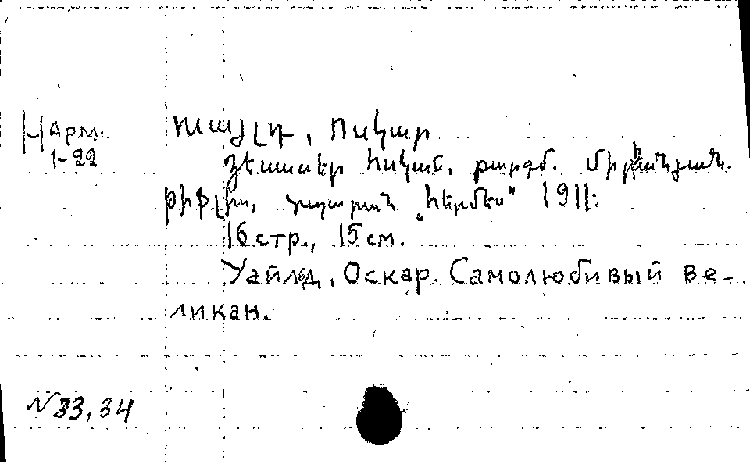 Арм. Ուայլդ, Օսկար
1-22 հսկան, թարգմ.
Թիֆլիս, տպարան „Հերմես“ 1911։
16 стр., 15 см.
Уайлд, Оскар. Самолюбивый ве-
ликан.
N 33, 34